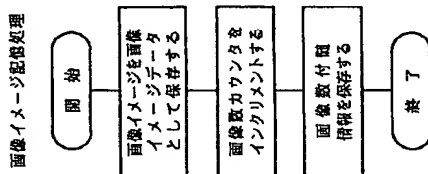 画像イメージ記憶処理
開始
画像イメージを画像
イメージデータ
として保存する
画像数カウンタを
インクリメントする
画像数付随
情報を保存する
終了